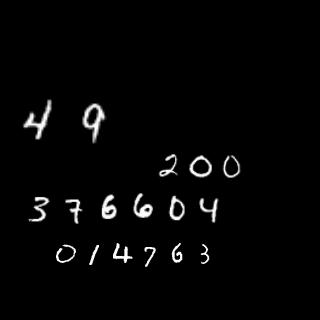 4 9
2 0 0
3 7 6 6 0 4
0 1 4 7 6 3